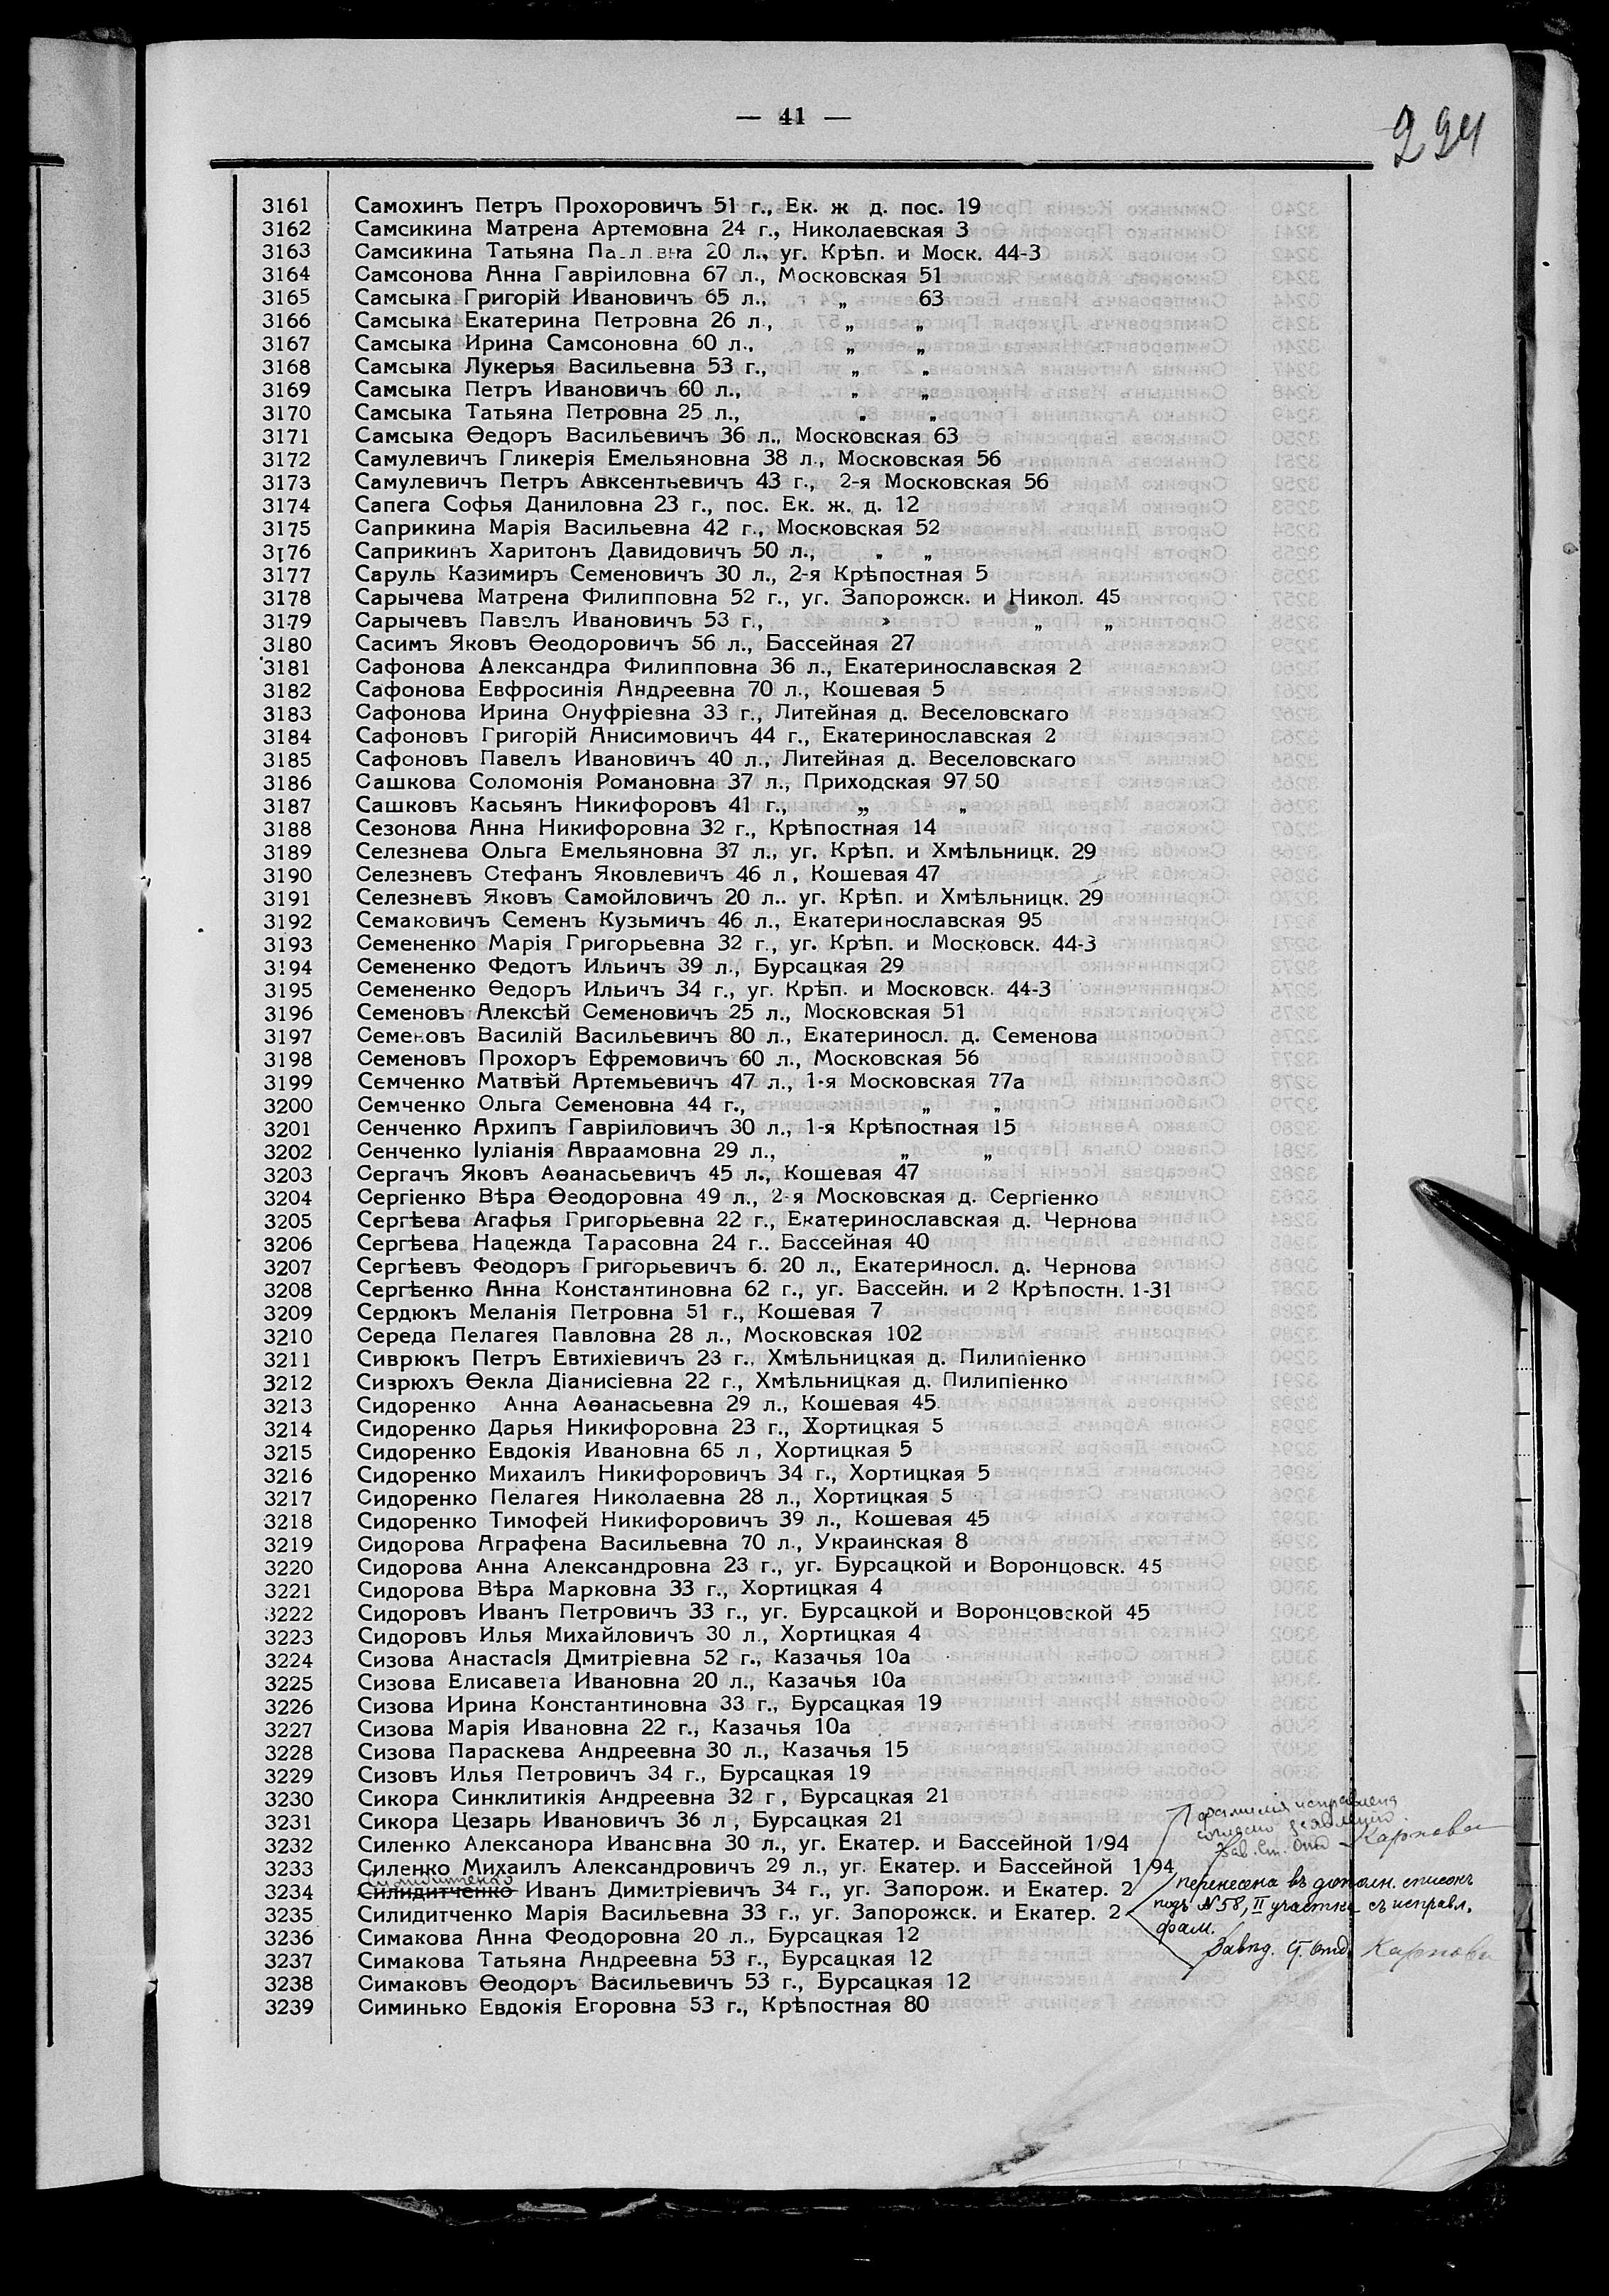 — 41 —
224
3161 Самохинъ Петръ Прохоровичъ 51 г., Ек. ж д. пос. 19
3162 Самсикина Матрена Артемовна 24 г., Николаевская 3
3163 Самсикина Татьяна Па л вна 20 л., уг. Крѣп. и Моск. 44-3
3164 Самсонова Анна Гавріиловна 67 л., Московская 51
3165 Самсыка Григорій Ивановичъ 65 л., „ 63
3166 Самсыка Екатерина Петровна 26 л., „ „
3167 Самсыка Ирина Самсоновна 60 л., „ „
3168 Самсыка Лукерья Васильевна 53 г., „ „
3169 Самсыка Петръ Ивановичъ 60 л., „ „
3170 Самсыка Татьяна Петровна 25 л., „ „
3171 Самсыка Ѳедоръ Васильевичъ 36 л., Московская 63
3172 Самулевичъ Гликерія Емельяновна 38 л., Московская 56
3173 Самулевичъ Петръ Авксентьевичъ 43 г., 2-я Московская 56
3174 Сапега Софья Даниловна 23 г., пос. Ек. ж. д. 12
3175 Саприкина Марія Васильевна 42 г., Московская 52
3176 Саприкинъ Харитонъ Давидовичъ 50 л., „ „
3177 Саруль Казимиръ Семеновичъ 30 л., 2-я Крѣпостная 5
3178 Сарычева Матрена Филипповна 52 г., уг. Запорожск. и Никол. 45
3179 Сарычевъ Павелъ Ивановичъ 53 г., „ „ „
3180 Сасимъ Яковъ Ѳеодоровичъ 56 л., Бассейная 27
3181 Сафонова Александра Филипповна 36 л., Екатеринославская 2
3182 Сафонова Евфросинія Андреевна 70 л., Кошевая 5
3183 Сафонова Ирина Онуфріевна 33 г., Литейная д. Веселовскаго
3184 Сафоновъ Григорій Анисимовичъ 44 г., Екатеринославская 2
3185 Сафоновъ Павелъ Ивановичъ 40 л., Литейная д. Веселовскаго
3186 Сашкова Соломонія Романовна 37 л., Приходская 97,50
3187 Сашковъ Касьянъ Никифоровъ 41 г., „ „
3188 Сезонова Анна Никифоровна 32 г., Крѣпостная 14
3189 Селезнева Ольга Емельяновна 37 л., уг. Крѣп. и Хмѣльницк. 29
3190 Селезневъ Стефанъ Яковлевичъ 46 л, Кошевая 47
3191 Селезневъ Яковъ Самойловичъ 20 л.. уг. Крѣп. и Хмѣльницк. 29
3192 Семаковичъ Семенъ Кузьмичъ 46 л., Екатеринославская 95
3193 Семененко Марія Григорьевна 32 г., уг. Крѣп. и Московск. 44-3
3194 Семененко Федотъ Ильичъ 39 л., Бурсацкая 29
3195 Семененко Ѳедоръ Ильичъ 34 г., уг. Крѣп. и Московск. 44-3
3196 Семеновъ Алексѣй Семеновичъ 25 л., Московская 51
3197 Семеновъ Василій Васильевичъ 80 л., Екатеринос­л. д. Семенова
3198 Семеновъ Прохоръ Ефремовичъ 60 л., Московская 56
3199 Семченко Матвѣй Артемьевичъ 47 л., 1-я Московская 77а
3200 Семченко Ольга Семеновна 44 г., „ „
3201 Сенченко Архипъ Гавріиловичъ 30 л., 1-я Крѣпостная 15
3202 Сенченко Іуліанія Авраамовна 29 л., „ „
3203 Сергачъ Яковъ Аѳанасьевичъ 45 л., Кошевая 47
3204 Сергіенко Вѣра Ѳеодоровна 49 л., 2-я Московская д. Сергіенко
3205 Сергѣева Агафья Григорьевна 22 г., Екатеринославская д. Чернова
3206 Сергѣева Нацежда Тарасовна 24 г.. Бассейная 40
3207 Сергѣевъ Феодоръ Григорьевичъ б. 20 л., Екатериносл. д. Чернова
3208 Сергѣенко Анна Константиновна 62 г., уг. Бассейн. и 2 Крѣпостн. 1-31
3209 Сердюкъ Меланія Петровна 51 г., Кошевая 7
3210 Середа Пелагея Павловна 28 л., Московская 102
3211 Сиврюкъ Петръ Евтихіевичъ 23 г., Хмѣльницкая д. Пилипіенко
3212 Сизрюхъ Ѳекла Діанисіевна 22 г., Хмѣльницкая д. Пилипіенко
3213 Сидоренко Анна Аѳанасьевна 29 л., Кошевая 45.
3214 Сидоренко Дарья Никифоровна 23 г., Хортицкая 5
3215 Сидоренко Евдокія Ивановна 65 л , Хортицкая 5
3216 Сидоренко Михаилъ Никифоровичъ 34 г., Хортицкая 5
3217 Сидоренко Пелагея Николаевна 28 л., Хортицкая 5
3218 Сидоренко Тимофей Никифоровичъ 39 л., Кошевая 45
3219 Сидорова Аграфена Васильевна 70 л., Украинская 8
3220 Сидорова Анна Александровна 23 г., уг. Бурсацкой и Воронцовск. 45
3221 Сидорова Вѣра Марковна 33 г., Хортицкая 4
3222 Сидоровъ Иванъ Петровичъ 33 г., уг. Бурсацкой и Воронцовской 45
3223 Сидоровъ Илья Михайловичъ 30 л., Хортицкая 4
3224 Сизова Анастасія Дмитріевна 52 г., Казачья 10а
3225 Сизова Елисавета Ивановна 20 л., Казачья 10а
3226 Сизова Ирина Константиновна 33 г., Бурсацкая 19
3227 Сизова Марія Ивановна 22 г., Казачья 10а
3228 Сизова Параскева Андреевна 30 л., Казачья 15
3229 Сизовъ Илья Петровичъ 34 г., Бурсацкая 19
3230 Сикора Синклитикія Андреевна 32 г , Бурсацкая 21
3231 Сикора Цезарь Ивановичъ 36 л , Бурсацкая 21
фамилія исправлена
согласно заявленію
Зав. Ст. Отд Карпова
3232 Силенко Алексанора Ивановна 30 л., уг. Екатер. и Бассейной 1/94
3233 Силенко Михаилъ Александровичъ 29 л., уг. Екатер. и Бассейной 1/94
3234 Силидитченко Иванъ Димитріевичъ 34 г., уг. Запорож. и Екатер. 2
3235 Силидитченко Марія Васильевна 33 г., уг. Запорожск. и Екатер. 2
перенесена въ дополн. списокъ
подъ №58, II участка съ исправл.
фам.
Завѣд. С. Отд. Карпова
3236 Симакова Анна Феодоровна 20 л., Бурсацкая 12
3237 Симакова Татьяна Андреевна 53 г., Бурсацкая 12
3238 Симаковъ Ѳеодоръ Васильевичъ 53 г., Бурсацкая 12
3239 Симинько Евдокія Егоровна 53 г., Крѣпостная 80